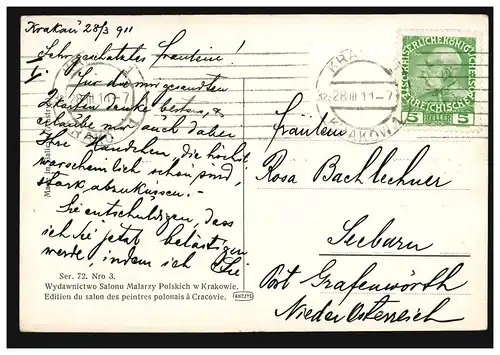 Krakau 28/3 911
Sehr geschätztes Fräulein!
Für die mir gesandten
2 Karten danke bestens, &
erlaube mir auch daher
Ihre Händchen die höchst
warscheinlich schön sind,
stark abzuküssen.-
Sie entschuldigen, dass
ich Sie jetzt belästigen
werde, indem ich Sie
Made in Galicia Austria
Ser. 72. Nro 3.
Wydawnictwo Salonu Malarzy Polskich w Krakowie.
Edition du salon des peintres polonais à Cracovie.
ANCZYC
KAISERLICHE KÖNIGLICHE
ÖSTERREICHISCHE
5 HELLER 5
KRA
28 III 11-7
KRAKOWA
Fräulein
Rosa Bachlechner
Seebarn
Post Grafenwörth
Nieder Österreich